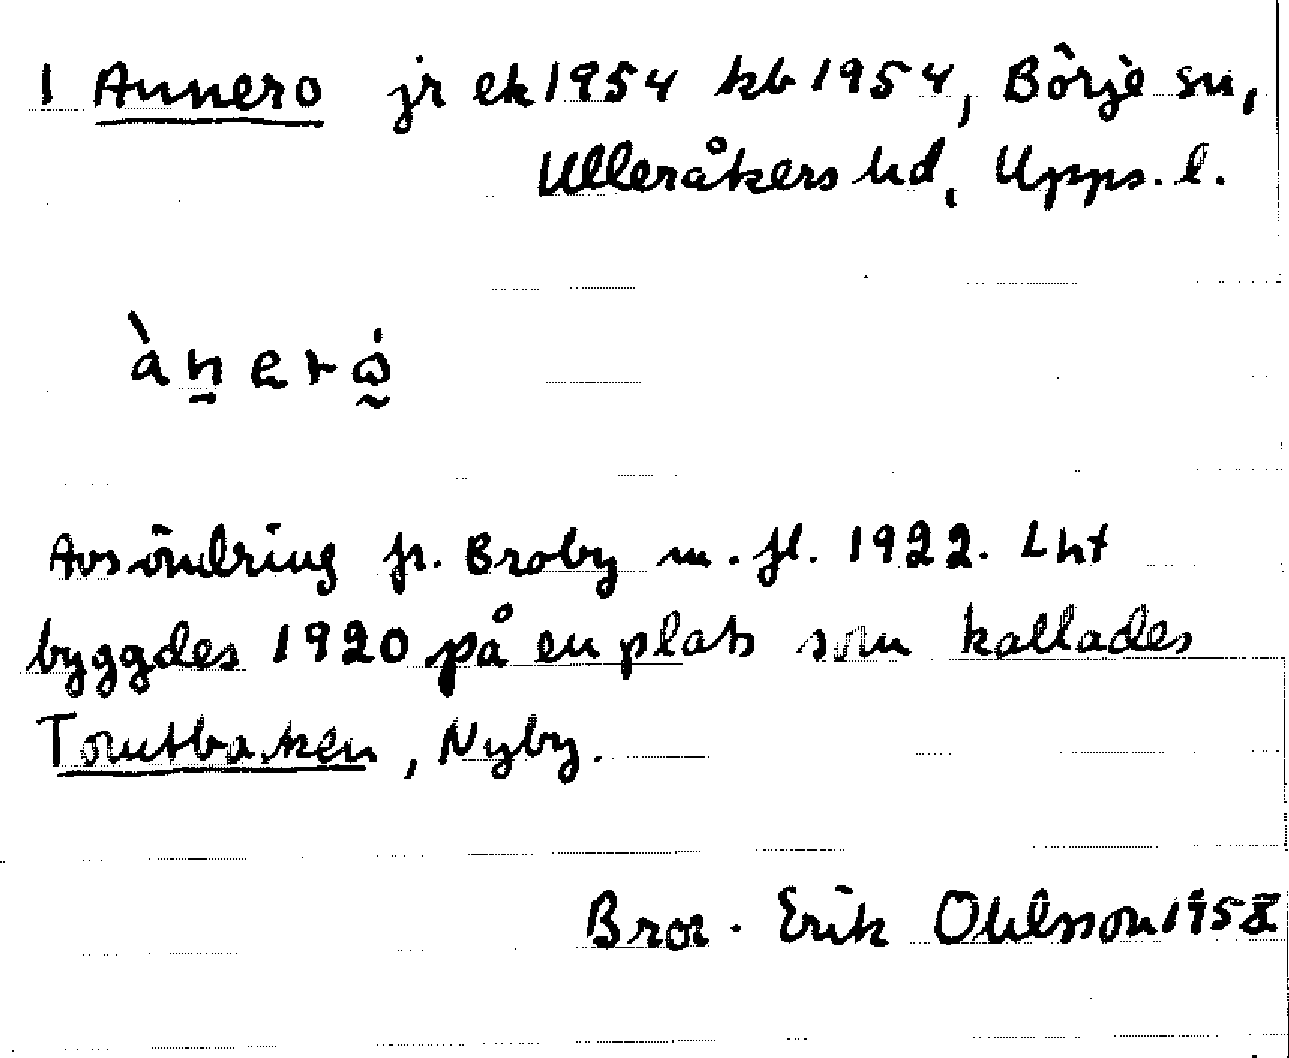 1 Annero jr ek 1954 kb 1954, Börje sn,
Ulleråkers hd, Upps. l.
ànerò̰
Avsöndring fr. Broby m. fl. 1922. Lht
byggdes 1920 på en plats som kallades
Tomtbacken, Nyby.
Bror-Erik Ohlsson 1958